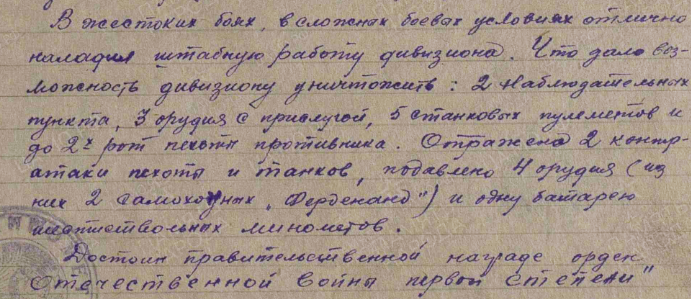 В жестоких боях, в сложных боевых условиях отлично
наладил штабную работу дивизиона. Что дало воз-
можность дивизиону уничтожить: 2 наблюдательных
пункта, 3 орудия с прислугой, 5 станковых пулеметов и
до 2х рот пехоты противника. Отражена 2 контр-
атаки пехоты и танков, подавлено 4 орудия (из
них 2 самоходных „Ферденанд") и одну батарею
шестиствольных минометов.
Достоин правительственной награде орден
Отечественной войны первой степени"